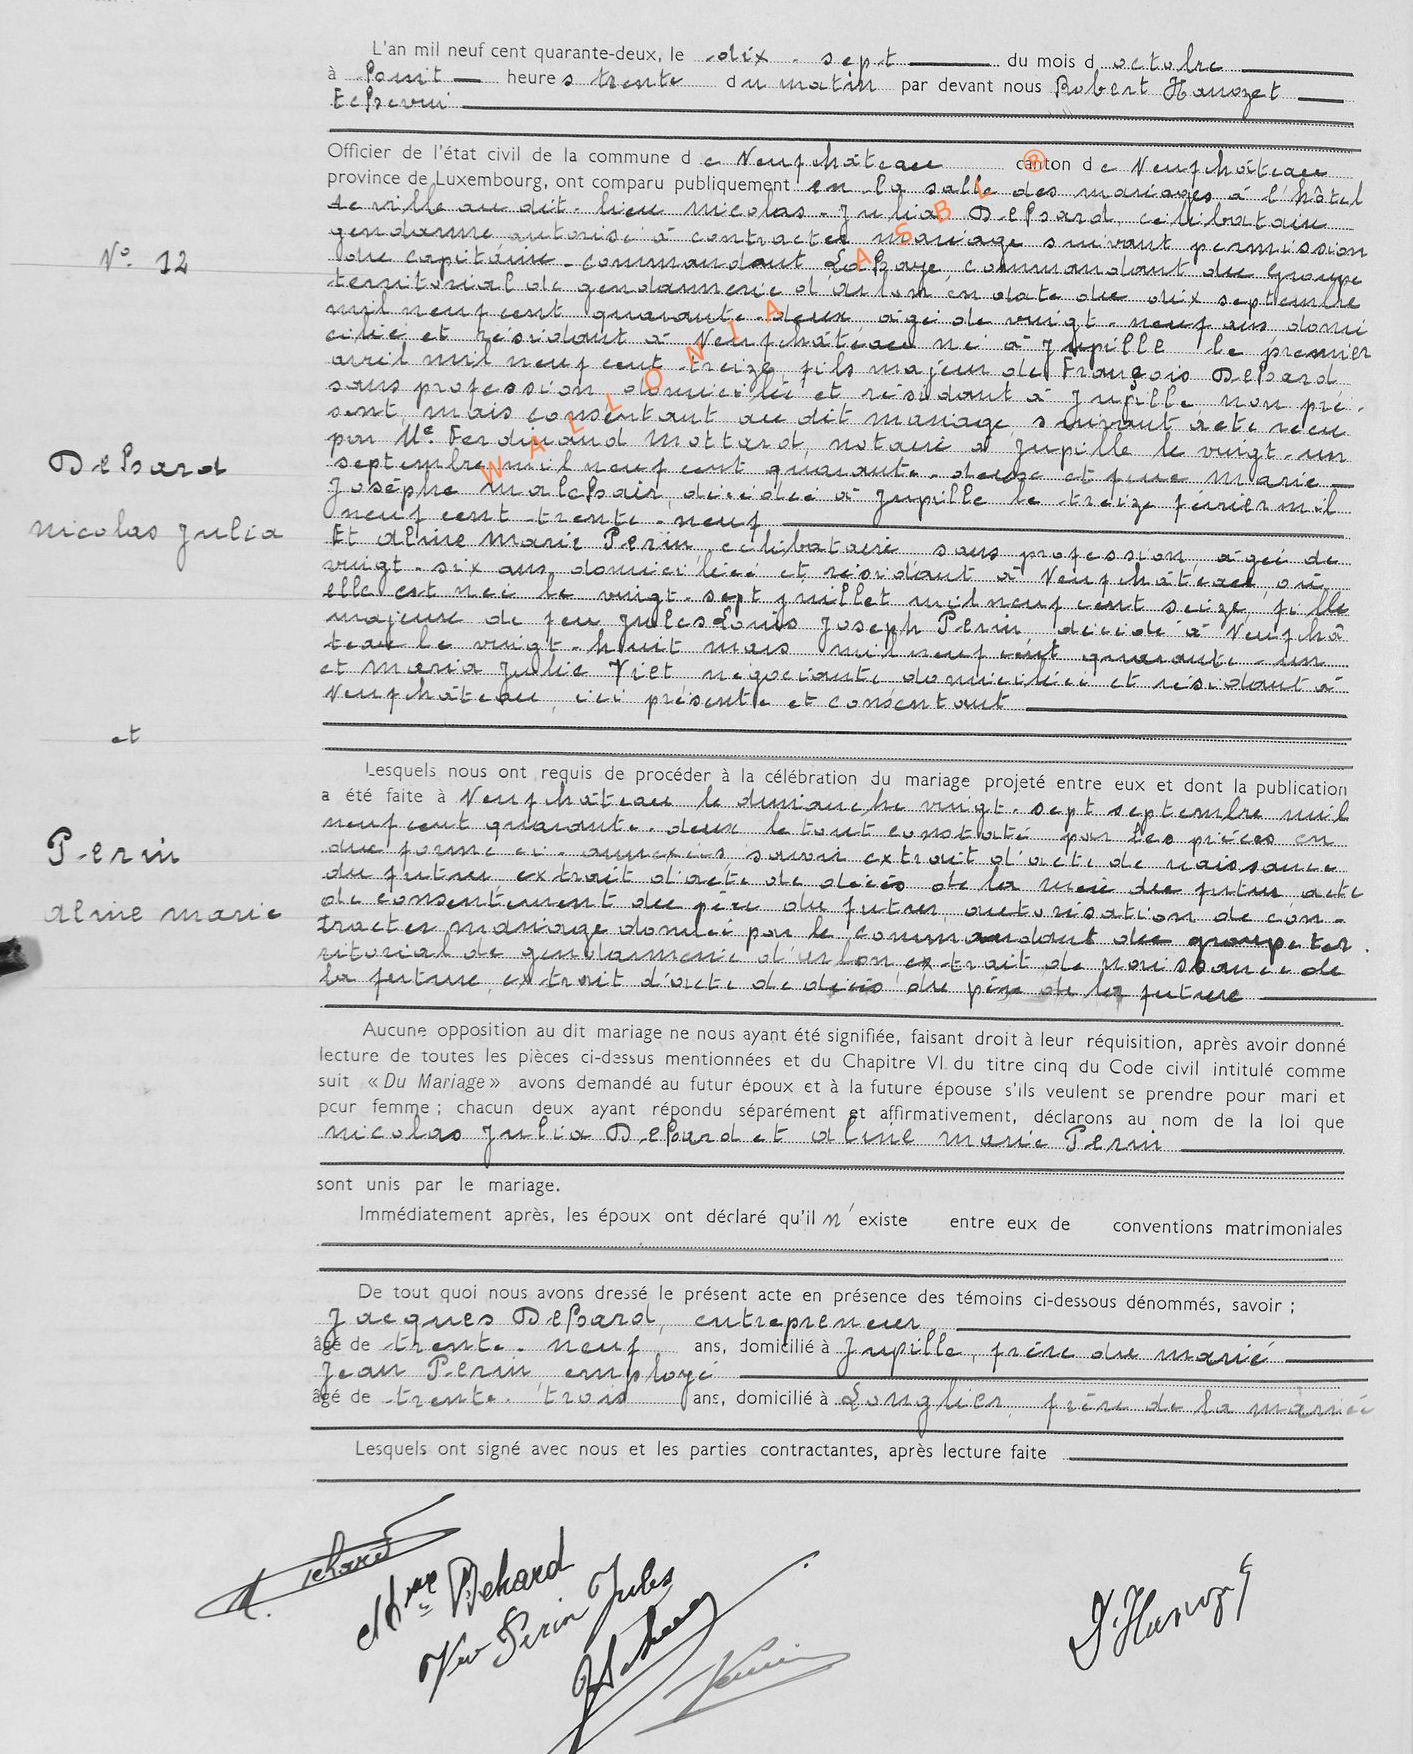 L'an mil neuf cent quarante-deux, le dix-sept du mois d octobre
à huit heures trente du matin par devant nous Robert Hanozet
Echevin
Officier de l'état civil de la commune de Neufchâteau canton de Neufchâteau
province de Luxembourg, ont comparu publiquement en la salle des mariages à l'hôtel
de ville au dit-lieu Nicolas-Julia Dehard, célibataire
gendarme autorisé à contracter mariage suivant permission
N° 12
du capitaine-commandant Lahaye, commandant du Groupe
territorial de gendarmerie d'Arlon en date du dix septembre
mil neuf cent quarante-deux âgé de vingt-neuf ans domi
cilié et résidant à Neufchâteau né à Jupille le premier
avril mil neuf cent treize, fils majeur de François Dehard
sans profession domicilié et résidant à Jupille non pré-
sent mais consentant au dit mariage suivant acte reçu
par Me Ferdinand Mottard, notaire à Jupille le vingt-un
septembre mil neuf cent quarante-deux et feue Marie
Josèphe Malchair, décédée à Jupille le treize février mil
neuf cent trente-neuf
Dehard
Nicolas Julia
Et Aline Marie Perin, célibataire sans profession, âgée de
vingt-six ans, domiciliée et résidant à Neufchâteau, où
elle est née le vingt-sept juillet mil neuf cent seize, fille
majeure de feu Jules Louis Joseph Perin, décédé à Neufchâ
teau le vingt-huit mars mil neuf cent quarante-un
et Maria Julie Viet négociante domiciliée et résidant à
Neufchâteau, ici présente et consentant
et
Lesquels nous ont requis de procéder à la célébration du mariage projeté entre eux et dont la publication
a été faite à Neufchâteau le dimanche vingt-sept septembre mil
neuf cent quarante-deux le tout constaté par les pièces en
due forme ci-annexées, savoir extrait d'acte de naissance
du futur extrait d'acte de décès de la mère du futur, acte
de consentement du père du futur, autorisation de con-
tracter mariage donnée par le commandant du groupe ter
ritorial de gendarmerie d'Arlon, extrait de naissance de
la future, extrait d'acte de décès du père de la future
Perin
Aline Marie
Aucune opposition au dit mariage ne nous ayant été signifiée, faisant droit à leur réquisition, après avoir donné
lecture de toutes les pièces ci-dessus mentionnées et du Chapitre VI du titre cinq du Code civil intitulé comme
suit « Du Mariage » avons demandé au futur époux et à la future épouse s'ils veulent se prendre pour mari et
pour femme ; chacun deux ayant répondu séparément et affirmativement, déclarons au nom de la loi que
Nicolas Julia Dehard et Aline Marie Perin
sont unis par le mariage.
Immédiatement après, les époux ont déclaré qu'il n'existe entre eux de conventions matrimoniales
De tout quoi nous avons dressé le présent acte en présence des témoins ci-dessous dénommés, savoir ;
Jacques Dehard, entrepreneur
âgé de trente-neuf ans, domicilié à Jupille, frère du marié
Jean Perin, employé
âgé de trente-trois ans, domicilié à Longlier, frère de la mariée
Lesquels ont signé avec nous et les parties contractantes, après lecture faite
Dehard
Mme Dehard
Vve Perin Jules
Perin
R. Hanozet
WALLONIA ASBL ®